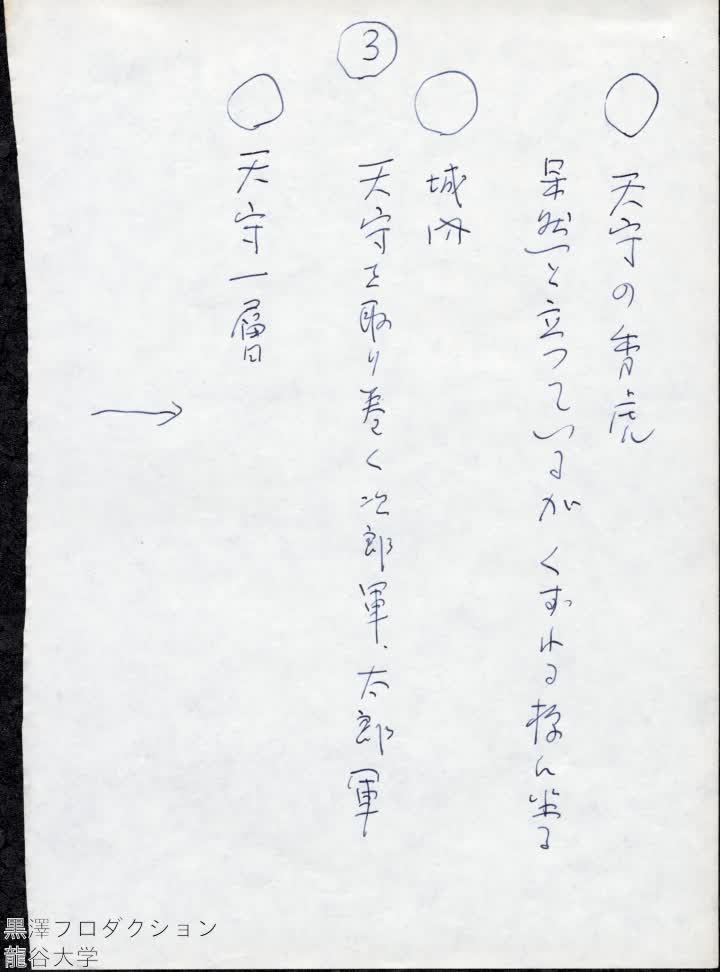 ③
○ 天守の秀虎
呆然と立っているが くずれる様に坐る
○ 城内
天守を取り巻く次郎軍、太郎軍
○ 天守一層
→
黒澤プロダクション
龍谷大学